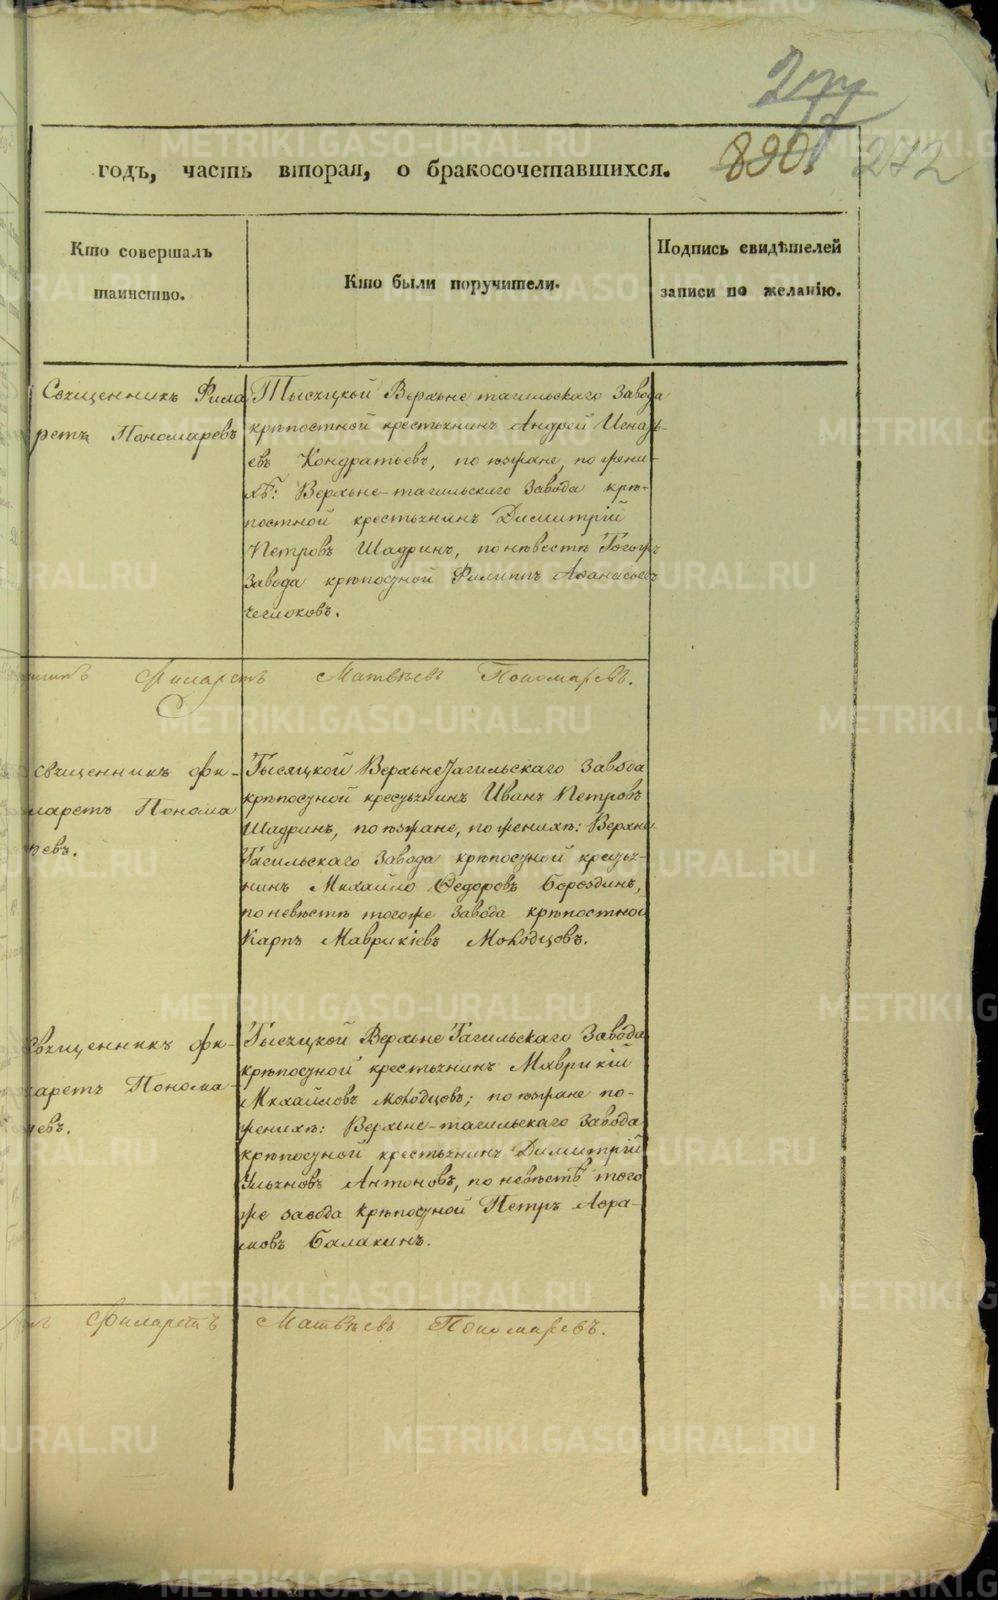 890. 212
годъ, часть вторая, о бракосочетавшихся.
Кто совершалъ
таинство.
Кто были поручители.
Подпись свидѣтелей
записи по желанію.
Священникъ Фила
ретъ Пономаревъ
Тысяцкой Верхъне тагильскаго Завода
крѣпостной крестьянинъ Андрей
евъ Кондратьевъ, поѣзжане, по жени-
хѣ: Верхъне-тагильскаго Завода крѣ-
постной крестьянинъ Димитрій
Петровъ Шадринъ, по невѣстѣ Тогожъ
Завода крѣпостной Филиппъ Аѳанасьевъ
Чеглоковъ.
Филаретъ Матвѣевъ Пономаревъ.
священникъ Фи-
ларетъ Понома
ревъ.
Тысяцкой ВерхънеТагильскаго Завода
крѣпостной крестьянинъ Иванъ Петровъ
Шадринъ, поѣзжане, по женихѣ: Верхне
Тагильскаго Завода крѣпостной крестья-
нинъ Михайло Ѳедоровъ Бороздинъ,
по невѣстѣ тогоже Завода крѣпостной
Карпъ Маврикіевъ Молодцовъ.
Священникъ Фи-
ларетъ Понома-
ревъ.
Тысяцкой Верхъне Тагильскаго Завода
крѣпостной крестьянинъ Маврикій
Михайловъ Молодцовъ; поѣзжане по-
женихѣ: Верхъне-тагильскаго Завода
крѣпостной крестьянинъ Димитрій
Ульяновъ Антоновъ, по невѣстѣ того
же завода крѣпостной Петръ Авра-
мовъ Балакинъ.
Филаретъ Матвѣевъ Пономаревъ.
METRIKI.GASO-URAL.RU